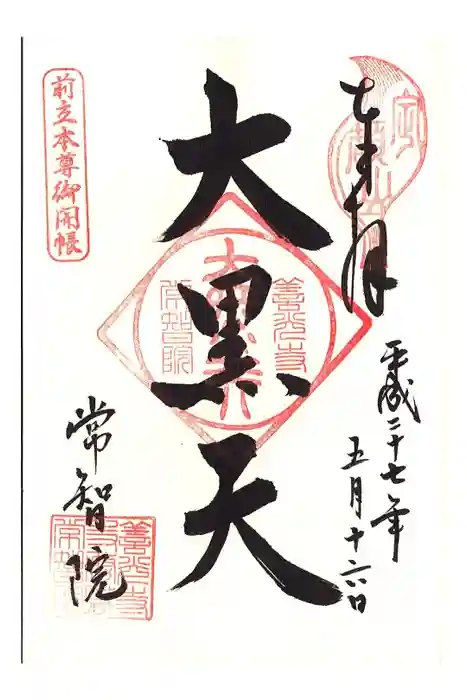 奉拝
平成二十七年
五月十六日
大黒天
常智院
前立本尊御開帳
善光寺
常智院
善光寺
常智院